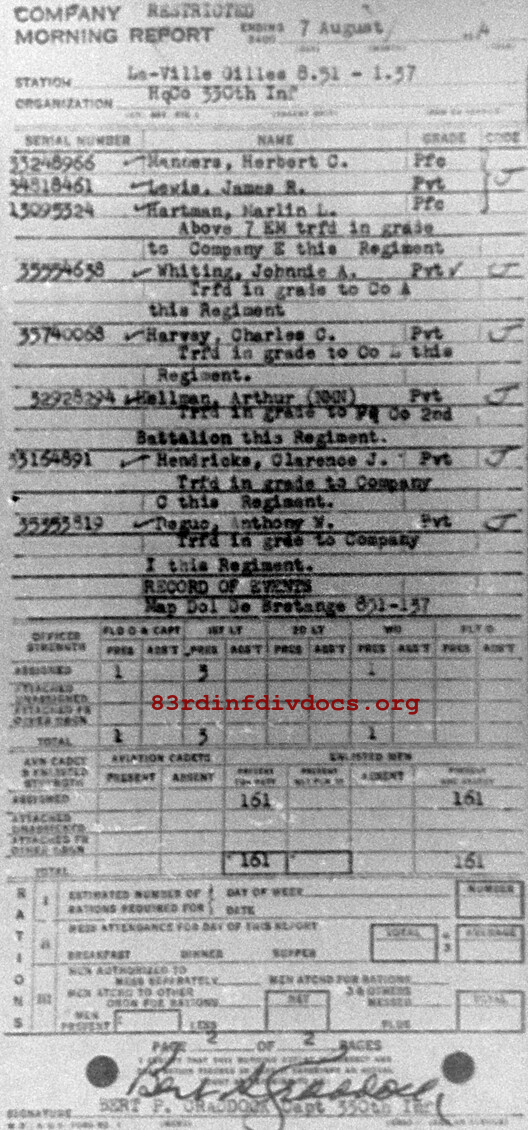 COMPANY RESTRICTED
MORNING REPORT ENDING 7 August 4
STATION La-Ville Gilles 8.51 - 1.37
ORGANIZATION HqCo 330th Inf
SERIAL NUMBER NAME GRADE CODE
33248966 Manners, Herbert C. Pfc
34818461 Lewis, James R. Pvt J
13095324 Hartman, Marlin L. Pfc
Above 7 EM trfd in grade
to Company E this Regiment
35554638 Whiting, Johnnie A. Pvt J
Trfd in grade to Co A
this Regiment
35740068 Harvey, Charles C. Pvt J
Trfd in grade to Co L this
Regiment.
32928294 Hellman, Arthur (NMN) Pvt J
Trfd in grade to Hq Co 2nd
Battalion this Regiment.
33164891 Hendricks, Clarence J. Pvt J
Trfd in grade to Company
C this Regiment.
35353819 Anthony W. Pvt J
Trfd in grde to Company
I this Regiment.
RECORD OF EVENTS
Map Dol De Bretange 851-137
OFFICER STRENGTH FLD O & CAPT 1ST LT 2D LT WO FLT O
PRES ABS'T PRES ABS'T PRES ABS'T PRES ABS'T PRES ABS'T
ASSIGNED 1 3 1
ATTACHED UNASSIGNED
ATTACHED FR OTHER ORGN
83rdinfdivdocs.org
TOTAL 1 3 1
AVN CADET & ENLISTED STRENGTH AVIATION CADETS ENLISTED MEN
PRESENT ABSENT PRESENT FOR DUTY PRESENT ABSENT PRESENT AND ABSENT
ASSIGNED 161 161
ATTACHED UNASSIGNED
ATTACHED FR OTHER ORGN
TOTAL 161 161
RATIONS
I ESTIMATED NUMBER OF RATIONS REQUIRED FOR DAY OF WEEK DATE NUMBER
II MESS ATTENDANCE FOR DAY OF THIS REPORT TOTAL ÷ 3 AVERAGE
BREAKFAST DINNER SUPPER
III MEN AUTHORIZED TO MESS SEPARATELY MEN ATCHD FOR RATIONS
MEN ATCHD TO OTHER ORGN FOR RATIONS NET OTHERS MESSED TOTAL
MEN PRESENT LESS PLUS
PAGE 2 OF 2 PAGES
Bert P. Craddock
SIGNATURE BERT P. CRADDOCK Capt 330th Inf